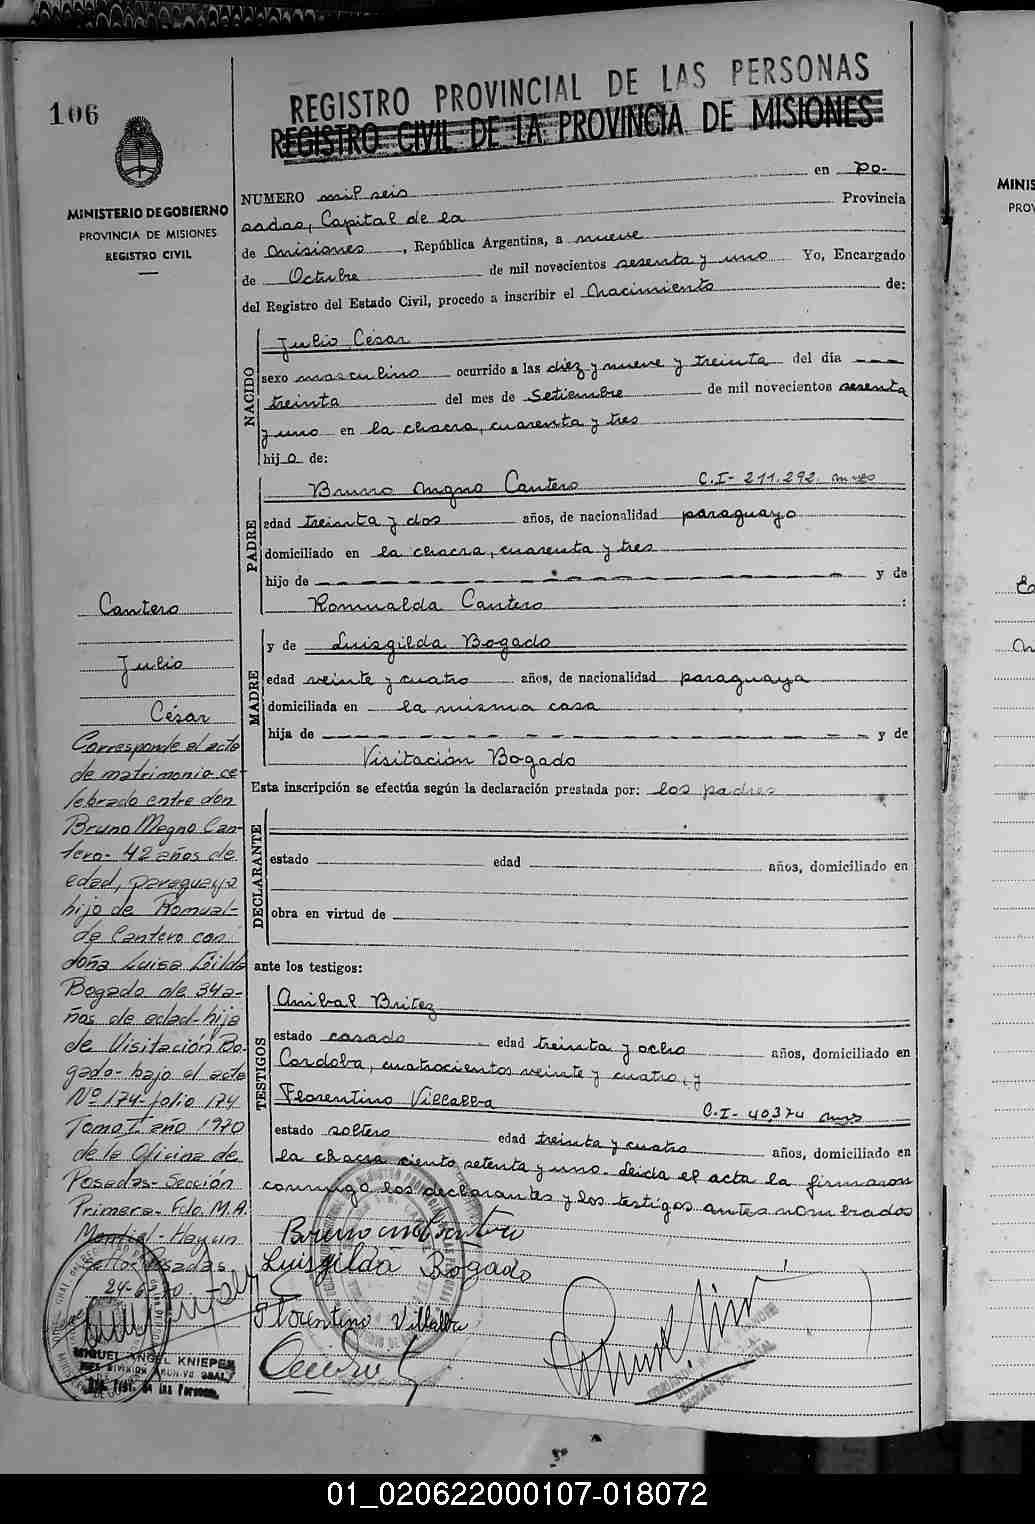 106
REGISTRO PROVINCIAL DE LAS PERSONAS
REGISTRO CIVIL DE LA PROVINCIA DE MISIONES
MINISTERIO DE GOBIERNO
PROVINCIA DE MISIONES
REGISTRO CIVIL
NUMERO mil seis en Po-
sadas, Capital de la Provincia
de Misiones, República Argentina, a nueve
de Octubre de mil novecientos sesenta y uno Yo, Encargado
del Registro del Estado Civil, procedo a inscribir el Nacimiento de:
NACIDO
Julio César
sexo masculino ocurrido a las diez y nueve y treinta del día
treinta del mes de Setiembre de mil novecientos sesenta
y uno en la chacra, cuarenta y tres
hijo de:
PADRE
Bruno Magno Cantero C.I- 211.292. mnes
edad treinta y dos años, de nacionalidad paraguayo
domiciliado en la chacra, cuarenta y tres
hijo de y de
Romualda Cantero :
MADRE
y de Luisgilda Bogado
edad veinte y cuatro años, de nacionalidad paraguaya
domiciliada en la misma casa
hija de y de
Visitación Bogado
Esta inscripción se efectúa según la declaración prestada por: los padres
DECLARANTE
estado edad años, domiciliado en
obra en virtud de
ante los testigos:
TESTIGOS
Anibal Britez
estado casado edad treinta y ocho años, domiciliado en
Cordoba, cuatrocientos veinte y cuatro, y
Florentino Villalba C.I- 40,374 mnes
estado soltero edad treinta y cuatro años, domiciliado en
la chacra ciento setenta y uno. Leida el acta la firmaron
conmigo los declarantes y los testigos antes nombrados
Luisgilda Bogado
Florentino Villalba
Cantero
Julio
César
Corresponde al acta
de matrimonio ce-
lebrado entre don
Bruno Magno Can-
tero- 42 años de
edad, paraguaya
hijo de Romual-
da Cantero con
doña Luisa Gilda
Bogado de 34 a-
ños de edad- hija
de Visitación Bo-
gado- bajo el acta
Nº 174- folio 174
Tomo I año 1970
de la Oficina de
Posadas- Sección
Primera- Fdo. M.A.
Montiel- Hay un
sello- Posadas
MIGUEL ANGEL KNIEPER
JEFE DIVISION ARCHIVO GRAL.
de las Personas
MINIS
PROV
01_020622000107-018072